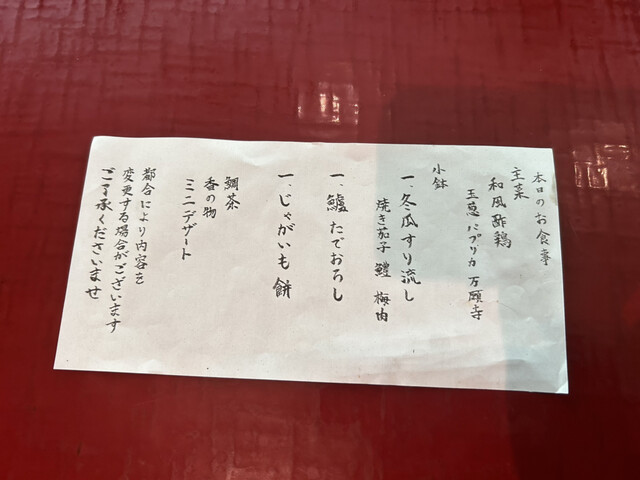 本日のお食事
主菜
和風酢鶏
玉葱 パプリカ 万願寺
小鉢
一、冬瓜すり流し
焼き茄子 鱧 梅肉
一、鱸たでおろし
一、じゃがいも餅
鯛茶
香の物
ミニデザート
都合により内容を
変更する場合がございます
ご了承くださいませ